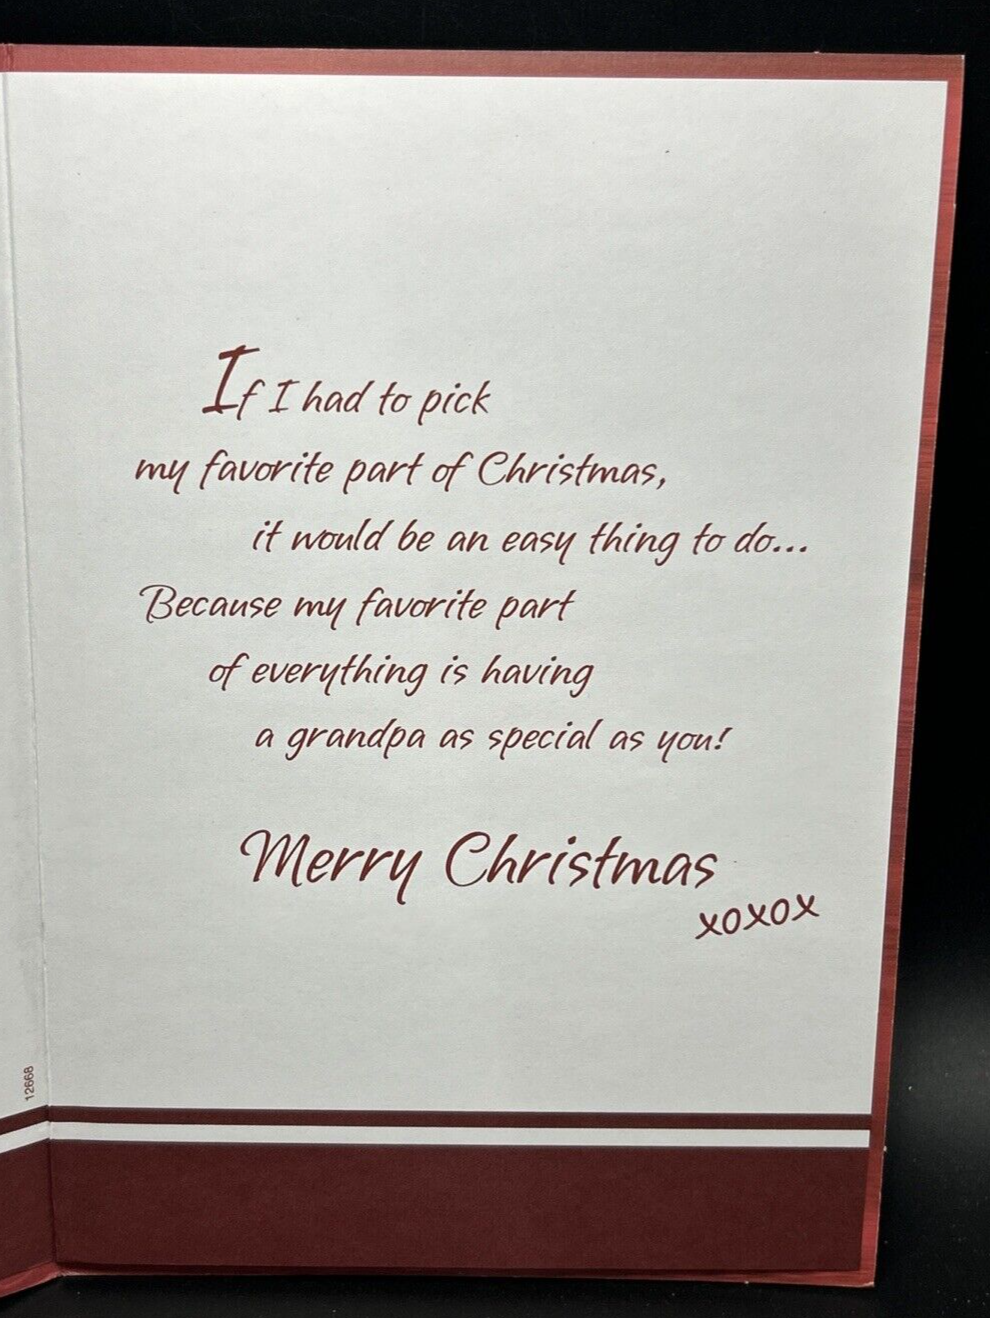 If I had to pick
my favorite part of Christmas,
it would be an easy thing to do...
Because my favorite part
of everything is having
a grandpa as special as you!
Merry Christmas
xoxox
12668